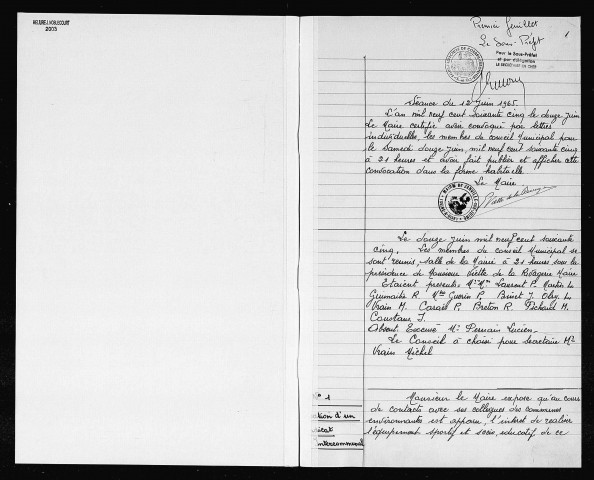 RELIURE J. NOBLECOURT
2003
Premier feuillet
1
Le Sous-Préfet
Pour le Sous-Préfet
et par délégation
LE SECRÉTAIRE EN CHEF
Séance du 12 Juin 1965.
L'an mil neuf cent soixante cinq le douze Juin
Le Maire certifie avoir convoqué par lettres
individuelles, les membres du conseil Municipal pour
le Samedi douze Juin, mil neuf cent soixante cinq
à 21 heures et avoir fait publier et afficher cette
convocation dans la forme habituelle.
Le Maire
Le douze Juin mil neuf cent soixante
cinq. Les membres du conseil Municipal se
sont reunis, salle de la Mairie à 21 heures sous la
présidence de Monsieur Viette de la Maire
Etaient presents. Mr Mme Laurent P. Martin L.
R. Mme Guerin P. Binet J. L.
Vrain M. P. Breton R. M.
Constans J.
Absent. Excusé Mr Lucien.
Le Conseil à choisi pour Secretaire Mr
Vrain Michel
N° 1
ation d'un
icat
intercommunal
Monsieur le Maire expose qu'au cours
de contacts avec ses collegues des communes
environnantes est apparu, l'interet de realiser
l'équipement sportif et socio, educatif, de ce